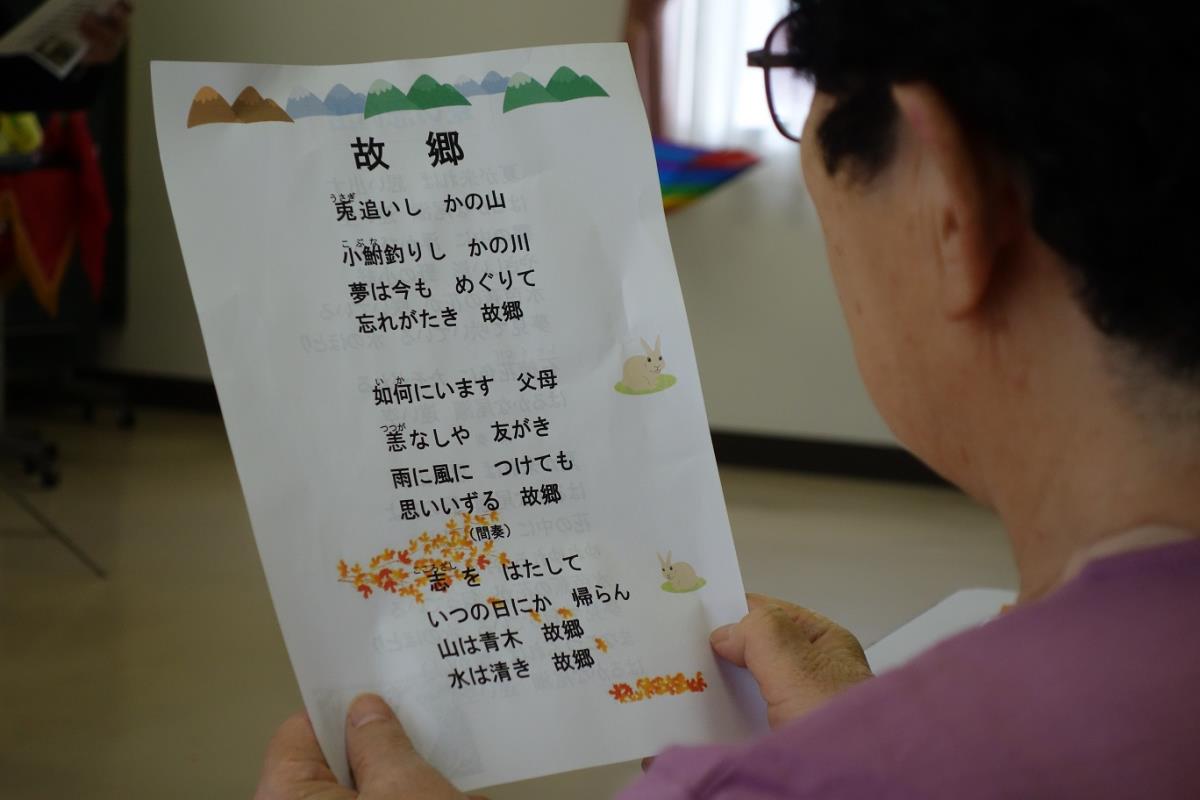 故 郷
うさぎ
兎追いし かの山
こぶな
小鮒釣りし かの川
夢は今も めぐりて
忘れがたき 故郷
いか
如何にいます 父母
つつが
恙なしや 友がき
雨に風に つけても
思いいずる 故郷
(間奏)
こころざし
志を はたして
いつの日にか 帰らん
山は青木 故郷
水は清き 故郷